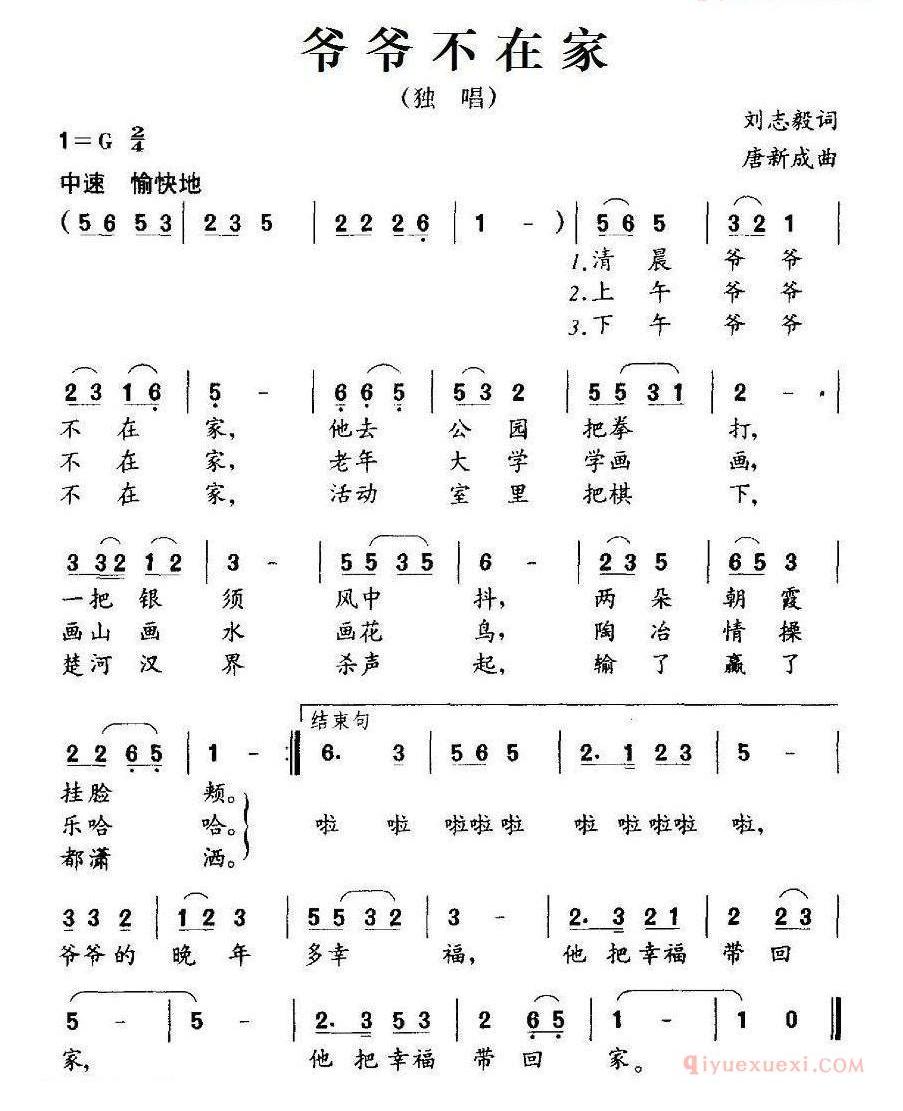 爷爷不在家
（独 唱）
1=G 2/4
刘志毅词
唐新成曲
中速 愉快地
(56 53 | 23 5 | 22 26 | 1 - ) | 56 5 | 32 1 |
1.清 晨 爷 爷
2.上 午 爷 爷
3.下 午 爷 爷
23 16 | 5 - | 66 5 | 53 2 | 55 31 | 2 - . |
不 在 家， 他去 公 园 把拳 打，
不 在 家， 老年 大 学 学画 画，
不 在 家， 活动 室 里 把棋 下，
3 32 12 | 3 - | 55 35 | 6 - | 23 5 | 65 3 |
一把 银 须 风中 抖， 两 朵 朝 霞
画山 画 水 画花 鸟， 陶 冶 情 操
楚河 汉 界 杀声 起， 输 了 赢 了
结束句
22 65 | 1 - :| 6. 3 | 56 5 | 2. 1 23 | 5 - |
挂脸 颊。
乐哈 哈。 啦 啦 啦啦 啦 啦 啦 啦啦 啦，
都潇 洒。
33 2 | 12 3 | 55 32 | 3 - | 2. 3 21 | 2 23 |
爷爷的 晚 年 多幸 福， 他 把 幸福 带 回
5 - | 5 - | 2. 3 53 | 2 65 | 1 - | 1 0 ‖
家， 他 把 幸福 带 回 家。
qiyuexuexi.COM